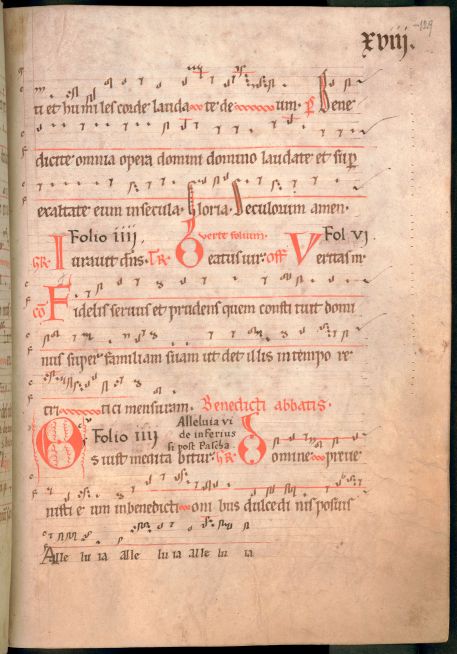 129
xviij.
ti et humiles corde lauda te de um. Bene
dicite omnia opera domini domino laudate et sup
exaltate eum in secula. Gloria Seculorum amen.
Folio iiij. verte folium. Fol VI
Iuravit dns. Tr Beatus uir. Off Veritas m
co Fidelis seruus et prudens quem consti tuit domi
nus super familiam suam ut det illis in tempo re
tri tici mensuram. Benedicti abbatis.
Folio iiij Alleluia vi
de inferius
si post Pascha
Os iusti medita bitur. Gr Domine preue
nisti e um in benedicti oni bus dulcedi nis posuis
Alle lu ia alle lu ia alle lu ia